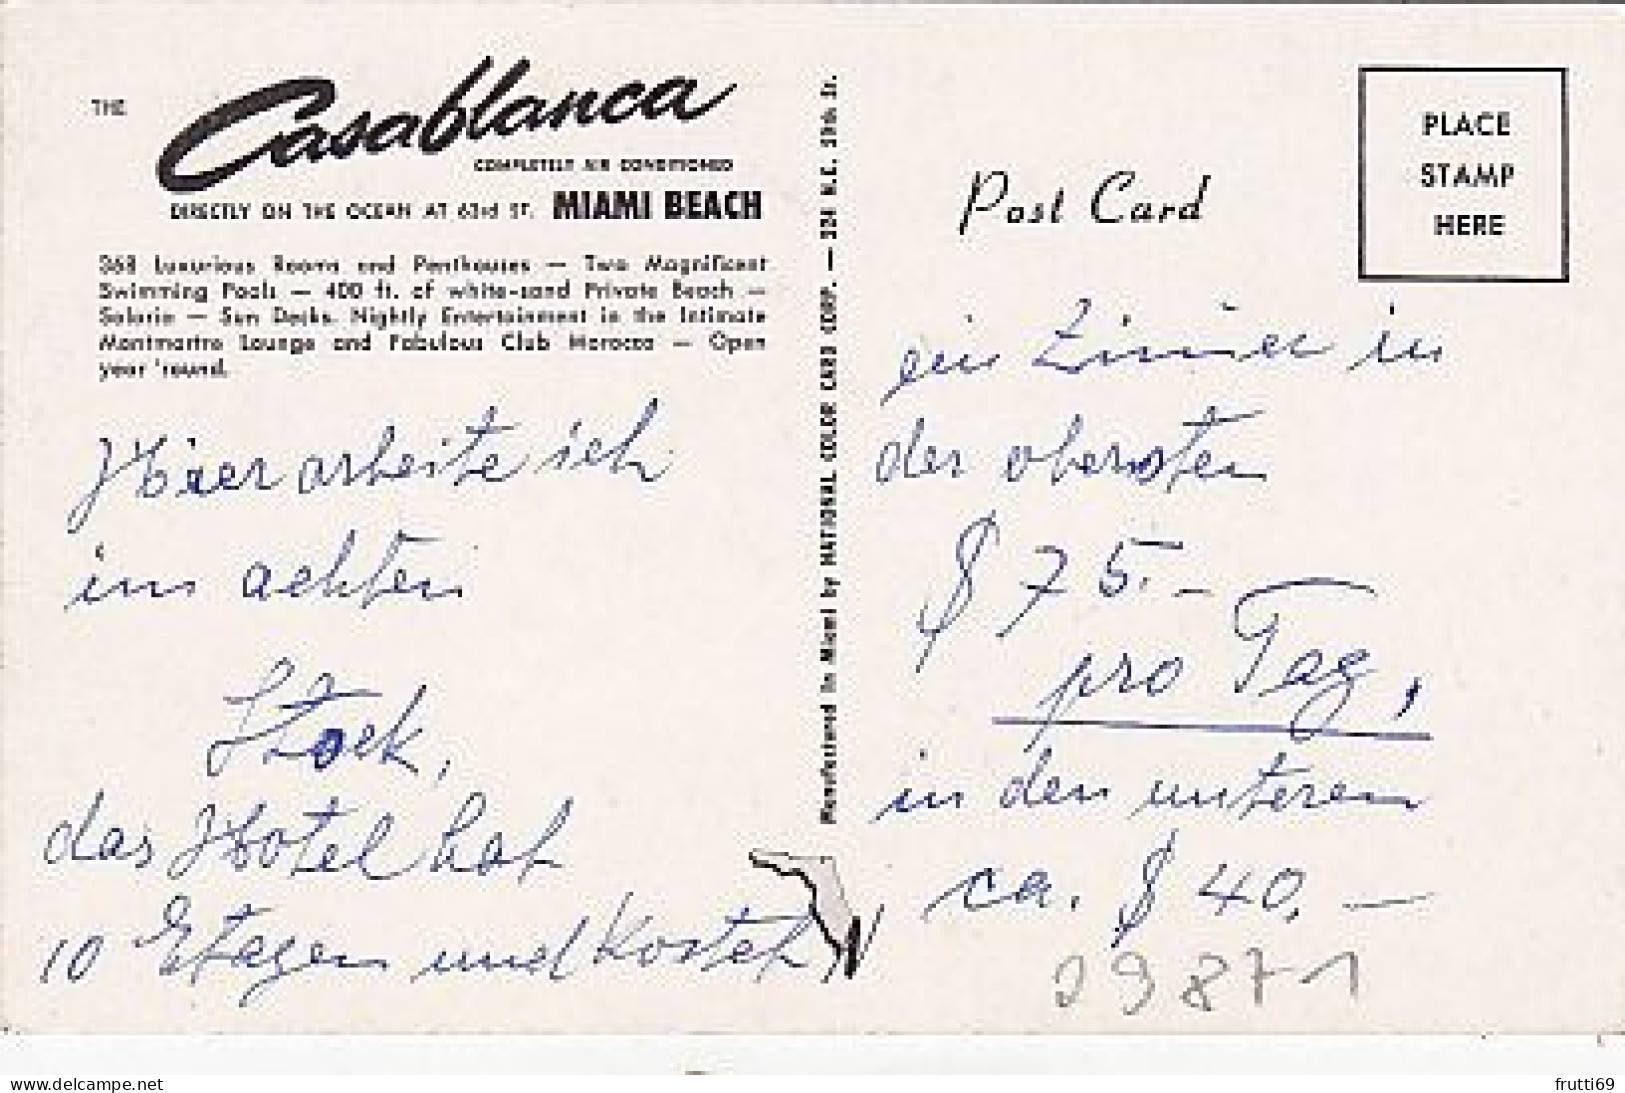 THE
Casablanca
COMPLETELY AIR CONDITIONED
DIRECTLY ON THE OCEAN AT 63rd ST. MIAMI BEACH
368 Luxurious Rooms and Penthouses — Two Magnificent
Swimming Pools — 400 ft. of white-sand Private Beach —
Solaria — Sun Decks. Nightly Entertainment in the Intimate
Montmartre Lounge and Fabulous Club Morocco — Open
year 'round.
Hier arbeite ich
im achten
Stock,
das Hotel hat
10 Etagen und kostet
Manufactured in Miami by NATIONAL COLOR CARD CORP. — 324 N.E. 59th St.
Post Card
PLACE
STAMP
HERE
ein Zimmer in
der obersten
$ 75.-
pro Tag,
in den unteren
ca. $ 40.—
29871
www.delcampe.net
frutti69